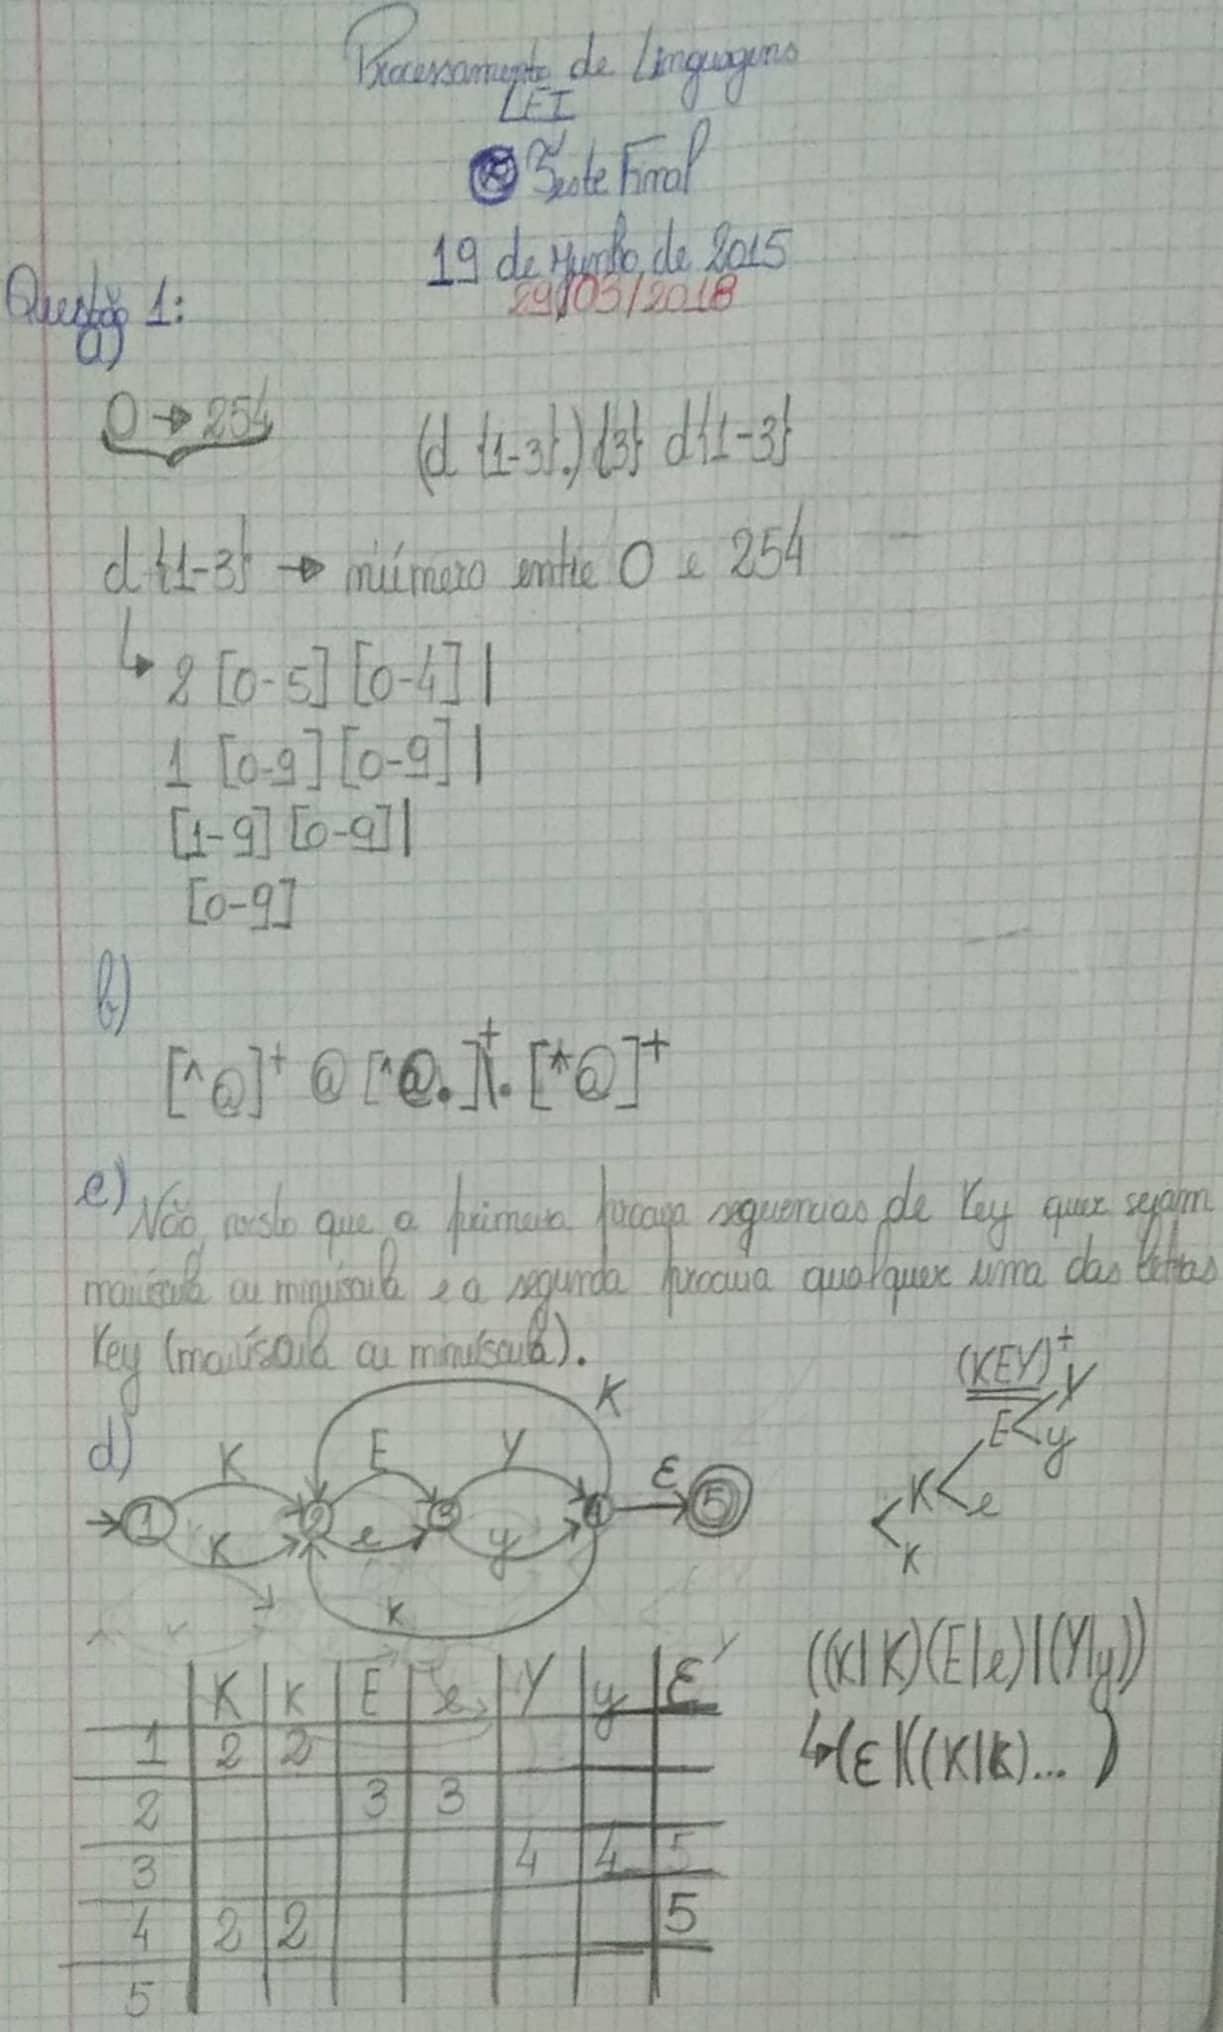 Processamento de Linguagens
LEI
Teste Final
19 de Junho de 2015
29/03/2018
Questão 1:
a)
0 → 254
(d {1-3}.) {3} d{1-3}
d{1-3} → número entre 0 e 254
↳ 2 [0-5] [0-4] |
1 [0-9] [0-9] |
[1-9] [0-9] |
[0-9]
b)
[^@]+ @ [^@.]+\. [^@]+
c) Não, visto que a primeira procura sequencias de Key quer sejam
maiúscula ou minúscula e a segunda procura qualquer uma das letras
Key (maiúscula ou minúscula).
d)
K E Y K
1 2 3 4 ε 5
K e y
K
(KEY)+
Y
E < y
K < e
< K
((K|K)(E|e)|(Y|y))
↳(ε|((K|K)... )
K K E e Y y ε
1 2 2
2 3 3
3 4 4 5
4 2 2 5
5